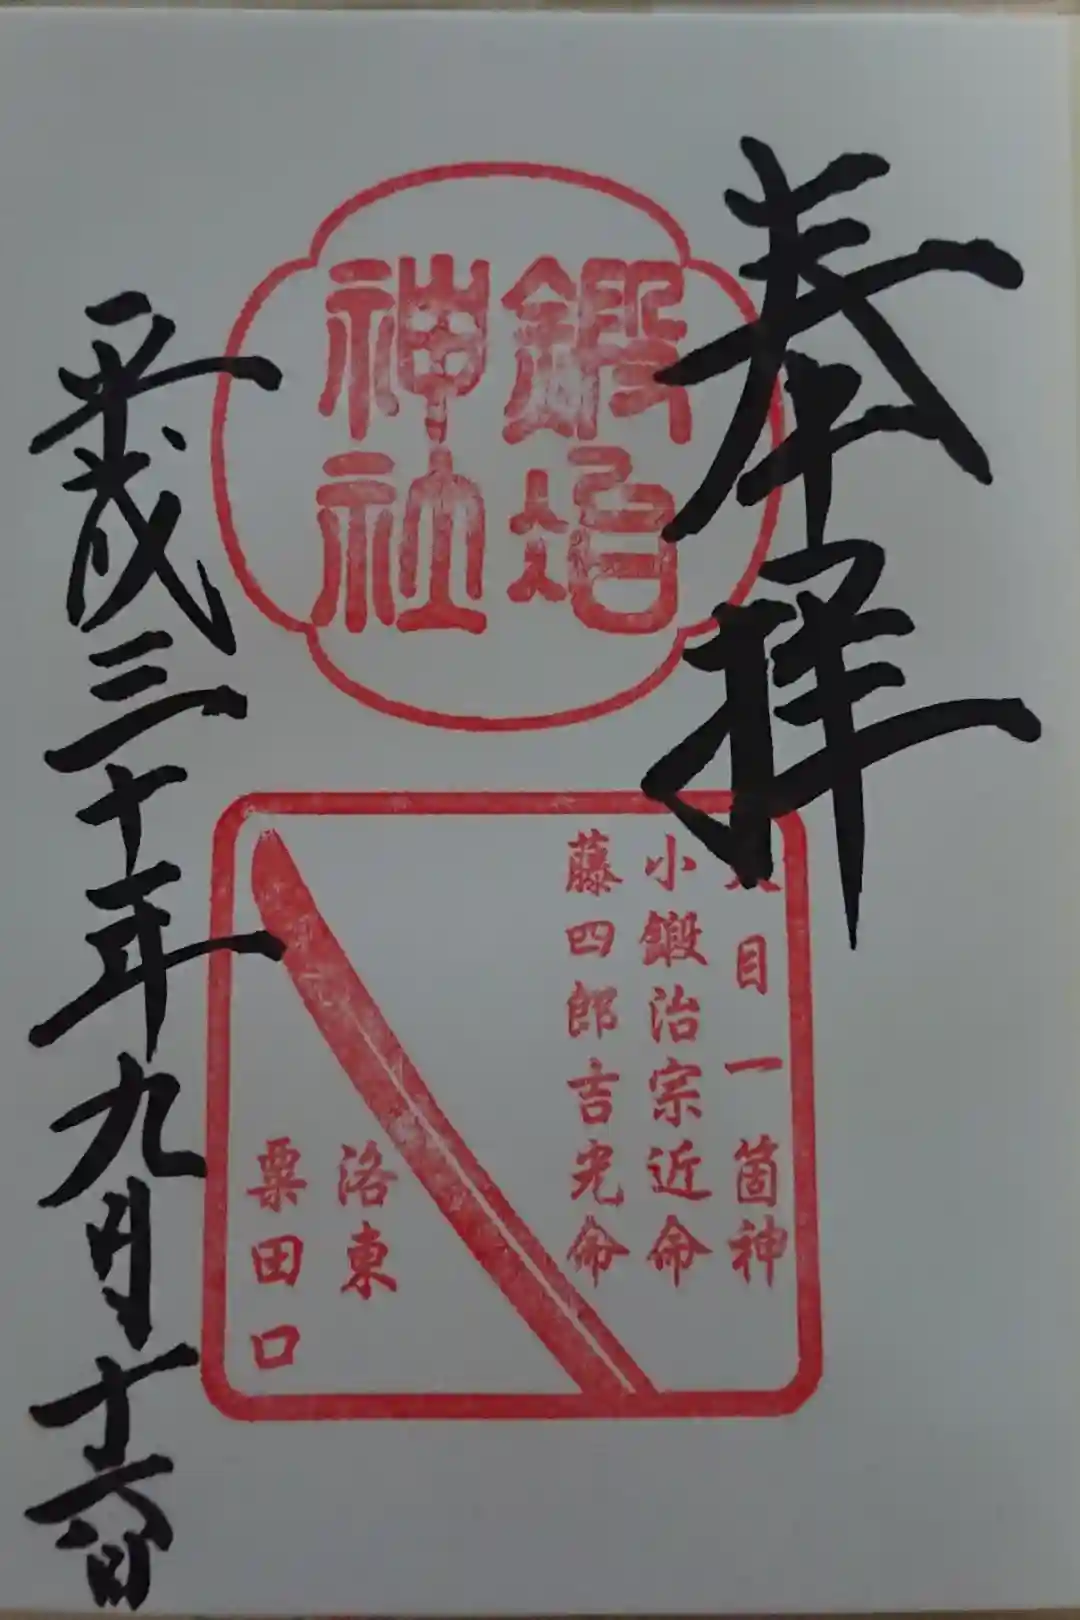 奉拝
鍛冶
神社
目一箇神
小鍛治宗近命
藤四郎吉光命
洛東
粟田口
平成三十年九月十六日